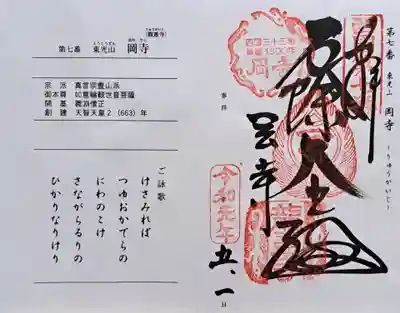 第七番 東光山 岡寺(龍蓋寺)
とうこうざん
おかでら
りゅうがいじ
宗派 真言宗豊山派
御本尊 如意輪観世音菩薩
開基 義淵僧正
創建 天智天皇2(663)年
ご詠歌
けさみれば
つゆおかでらの
にわのこけ
さながらるりの
ひかりなりけり
第七番 東光山 岡寺
~りゅうがいじ~
奉拝
西国三十三所
草創1300年
岡寺
令和元年
五.一
日